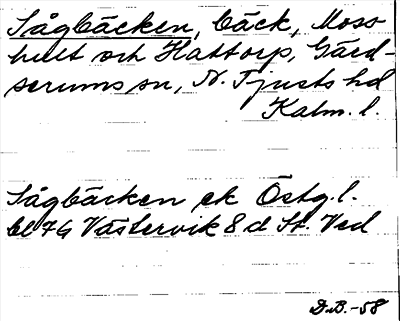 Sågbäcken, bäck, Moss
hult och Hattorp, Gärd-
serums sn, N. Tjusts hd
Kalm. l.
Sågbäcken ek Östg. l.
bl 7G Västervik 8 d St. Ved
D.B.-58